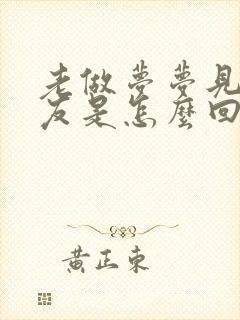 老做夢夢見
友是怎麼回
黃正東